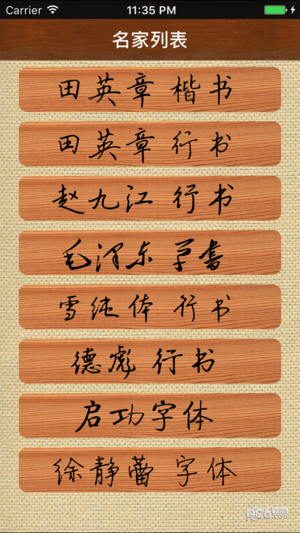 Carrier 11:35 PM
名家列表
田英章 楷书
田英章 行书
赵九江 行书
毛泽东 草書
雪纯体 行书
德彪 行书
启功字体
徐静蕾 字体